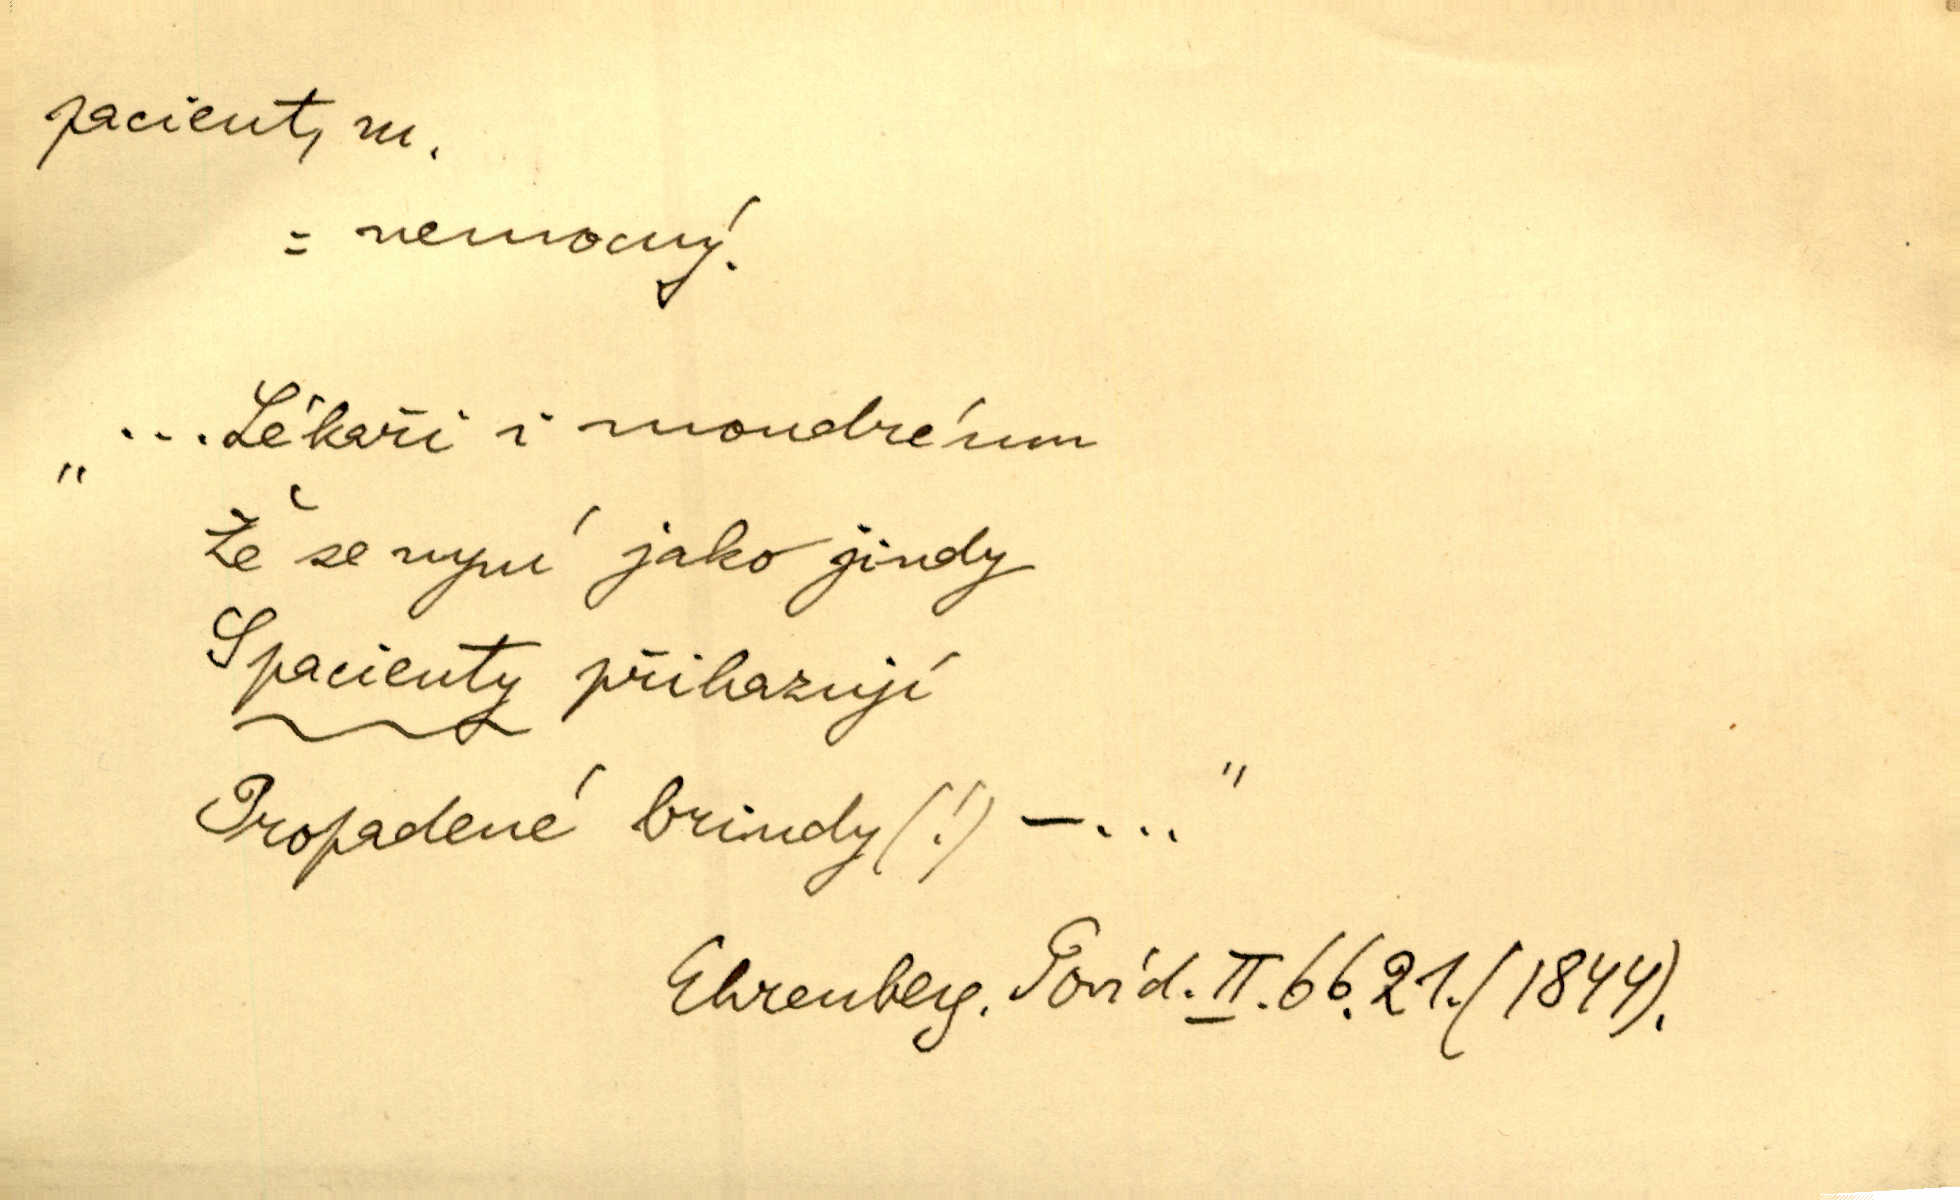 pacient, m.
= nemocný.
„ ...Lékaři i moudrému
Že se nyní jako jindy
S pacienty přihazují
Propadené brindy (!) – ..."
Ehrenberg. Povíd. II. 66. 21. (1844).